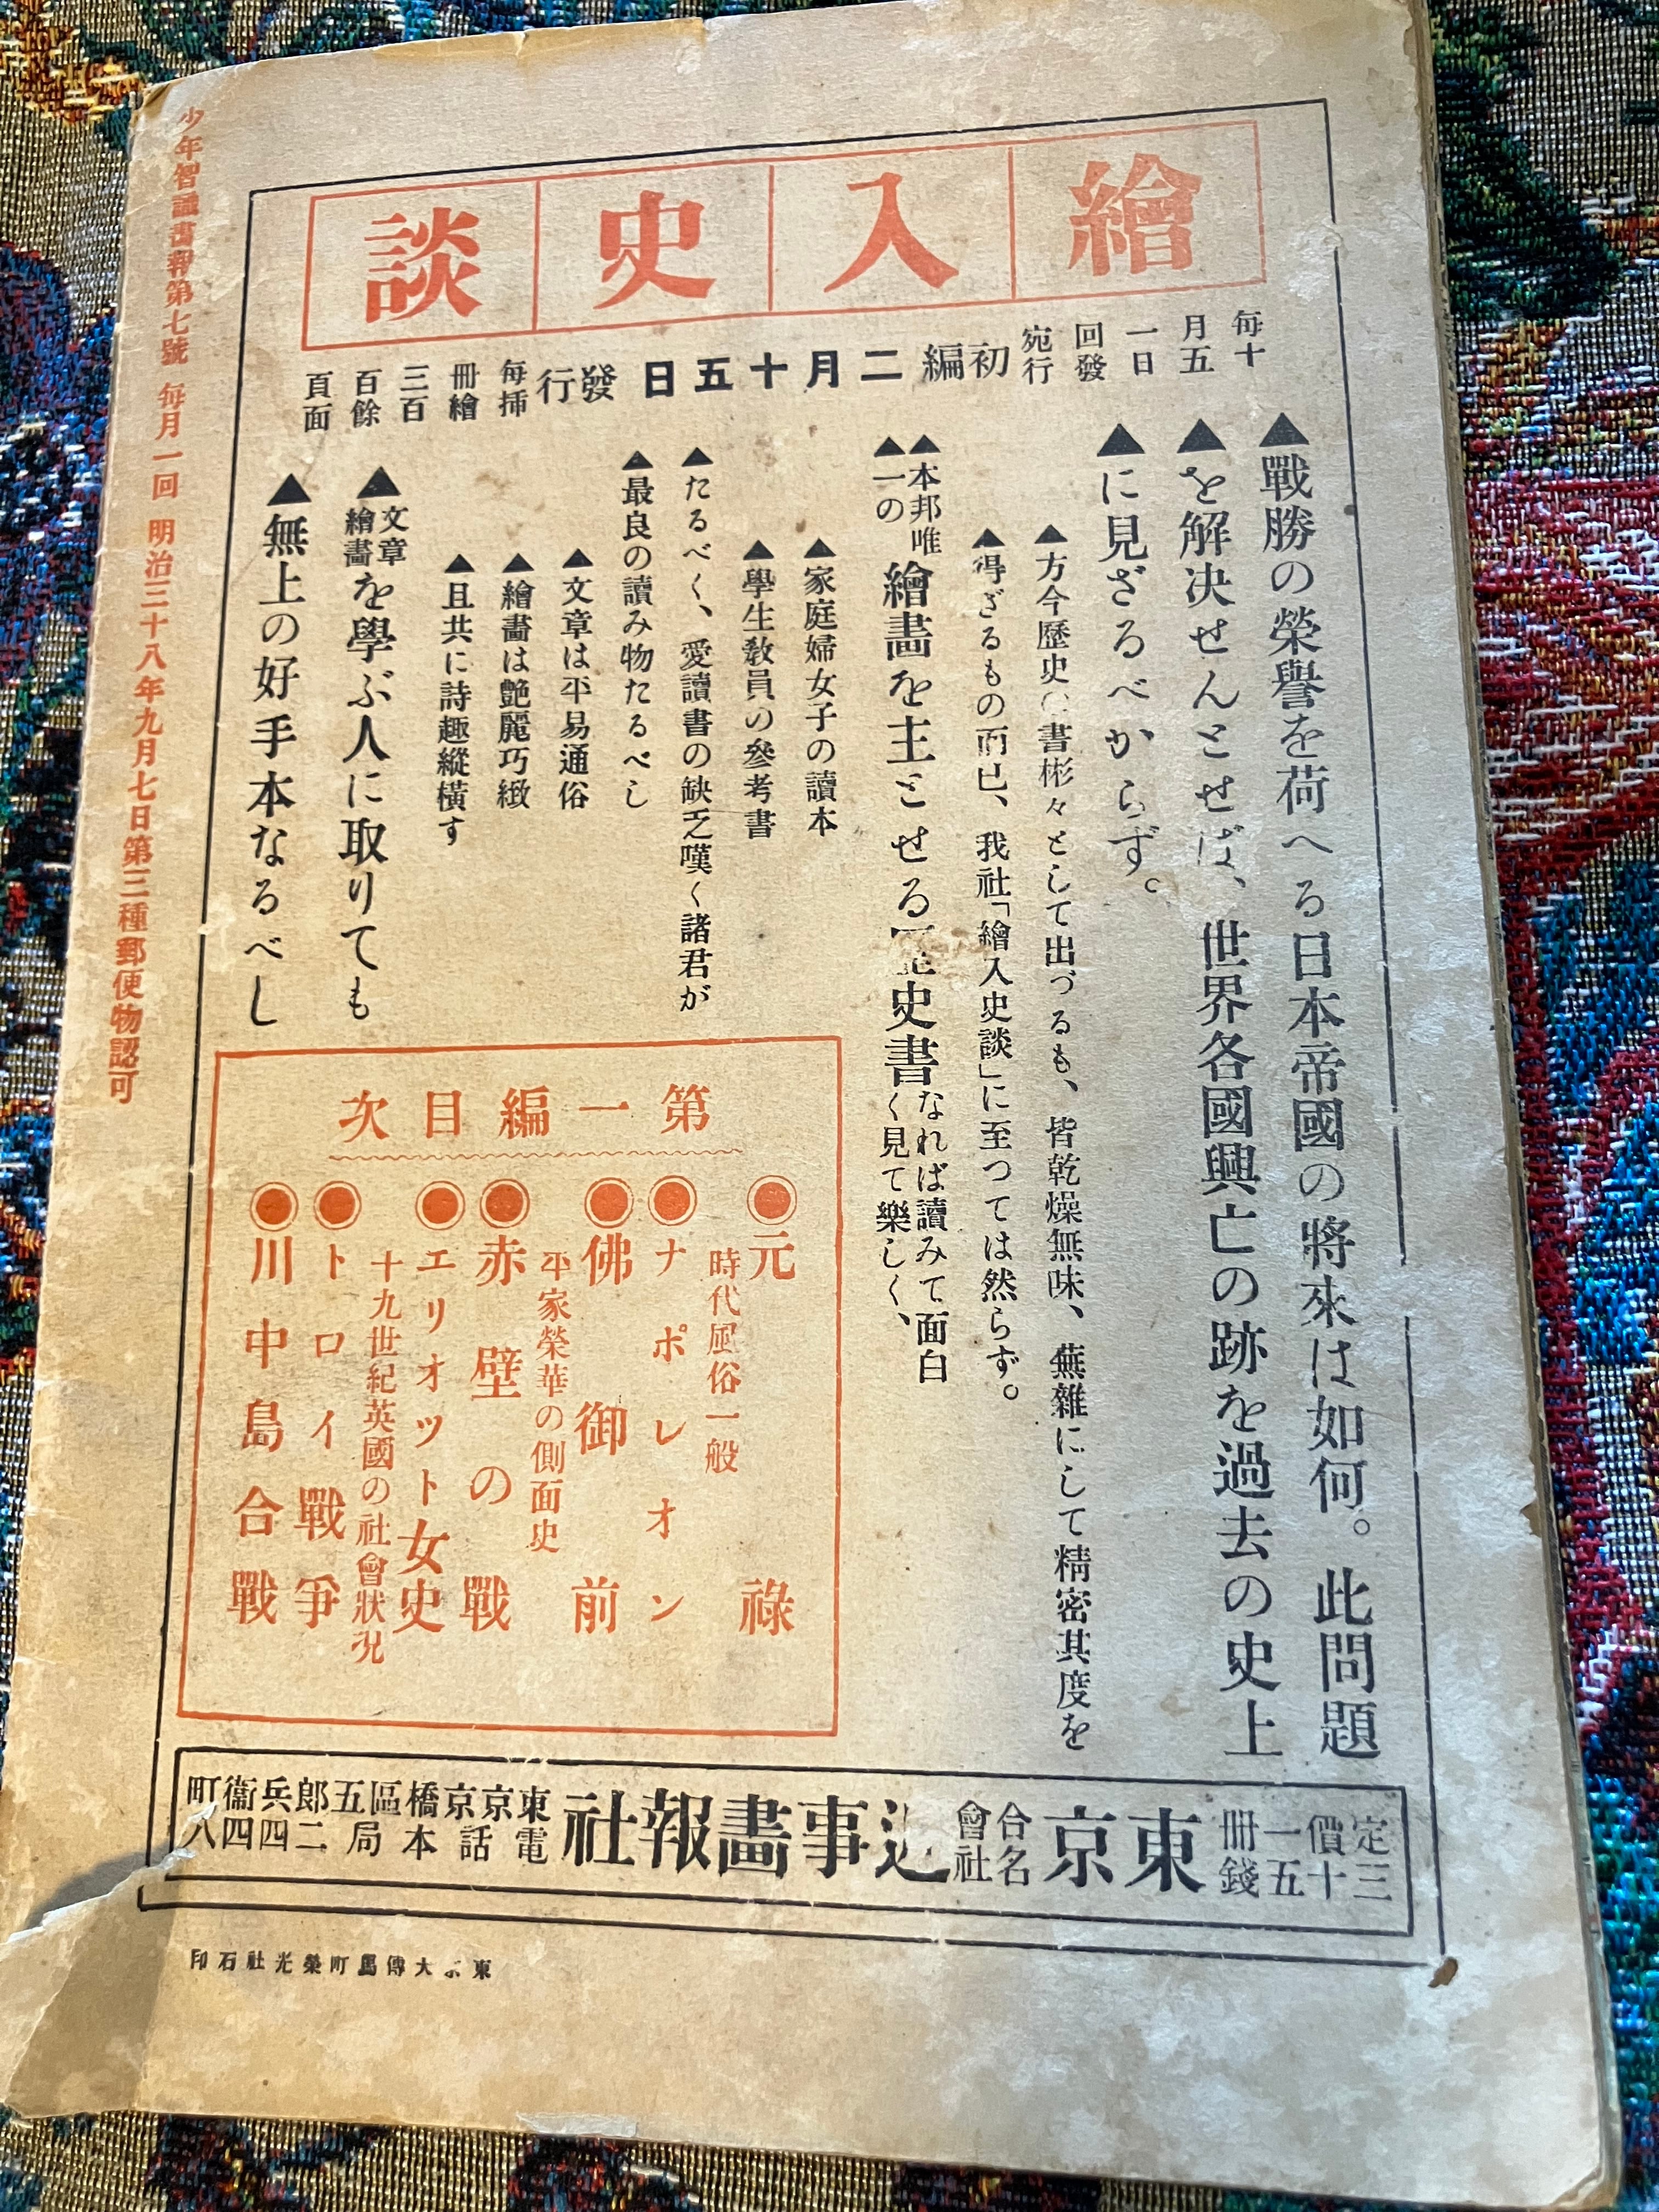 繪入史談
每月一回發行
十五日宛
初編二月十五日發行
每冊三百頁
挿繪百餘面
▲戰勝の榮譽を荷へる日本帝國の將來は如何。此問題
▲を解決せんとせば、世界各國興亡の跡を過去の史上
▲に見ざるべからず。
▲方今歷史の書彬々として出づるも、皆乾燥無味、蕪雜にして精密其度を
▲得ざるもの而已、我社「繪入史談」に至つては然らず。
▲本邦唯
▲一の
繪畵を主とせる歷史書
なれば讀みて面白
く見て樂しく、
▲家庭婦女子の讀本
▲學生敎員の參考書
▲たるべく、愛讀書の缺乏嘆く諸君が
▲最良の讀み物たるべし
▲文章は平易通俗
▲繪畵は艶麗巧緻
▲且共に詩趣縱橫す
▲文章
繪畵
を學ぶ人に取りても
▲無上の好手本なるべし
第一編目次
◉元祿
時代風俗一般
◉ナポレオン
◉佛御前
平家榮華の側面史
◉赤壁の戰
◉エリオット女史
十九世紀英國の社會狀況
◉トロイ戰爭
◉川中島合戰
定價一冊
三十五錢
東京
合名
會社
近事畵報社
東京京橋區五郎兵衞町
電話本局二四四八
少年智識畵報第七號 每月一回 明治三十八年九月七日第三種郵便物認可
東京大傳馬町榮光社石印